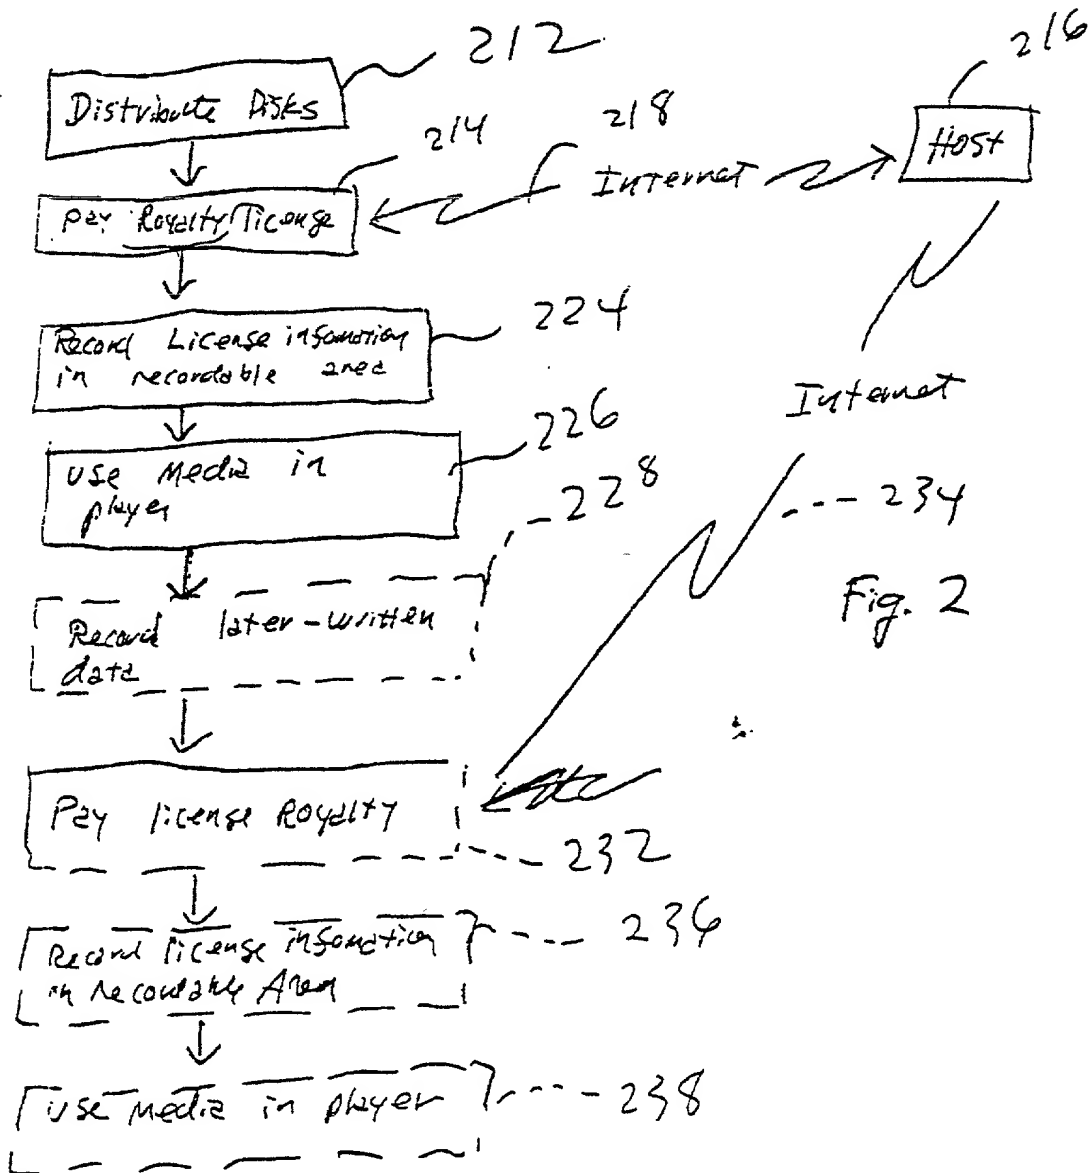 212
216
Distribute Disks
214
218
Host
Internet
Pay Royalty/license
224
Record License infomation
in recordable area
Internet
226
Use Media in
player
228
234
Record later-written
data
Fig. 2
Pay license Royalty
232
Record license infomation
in recordable Area
236
Use Media in player
238